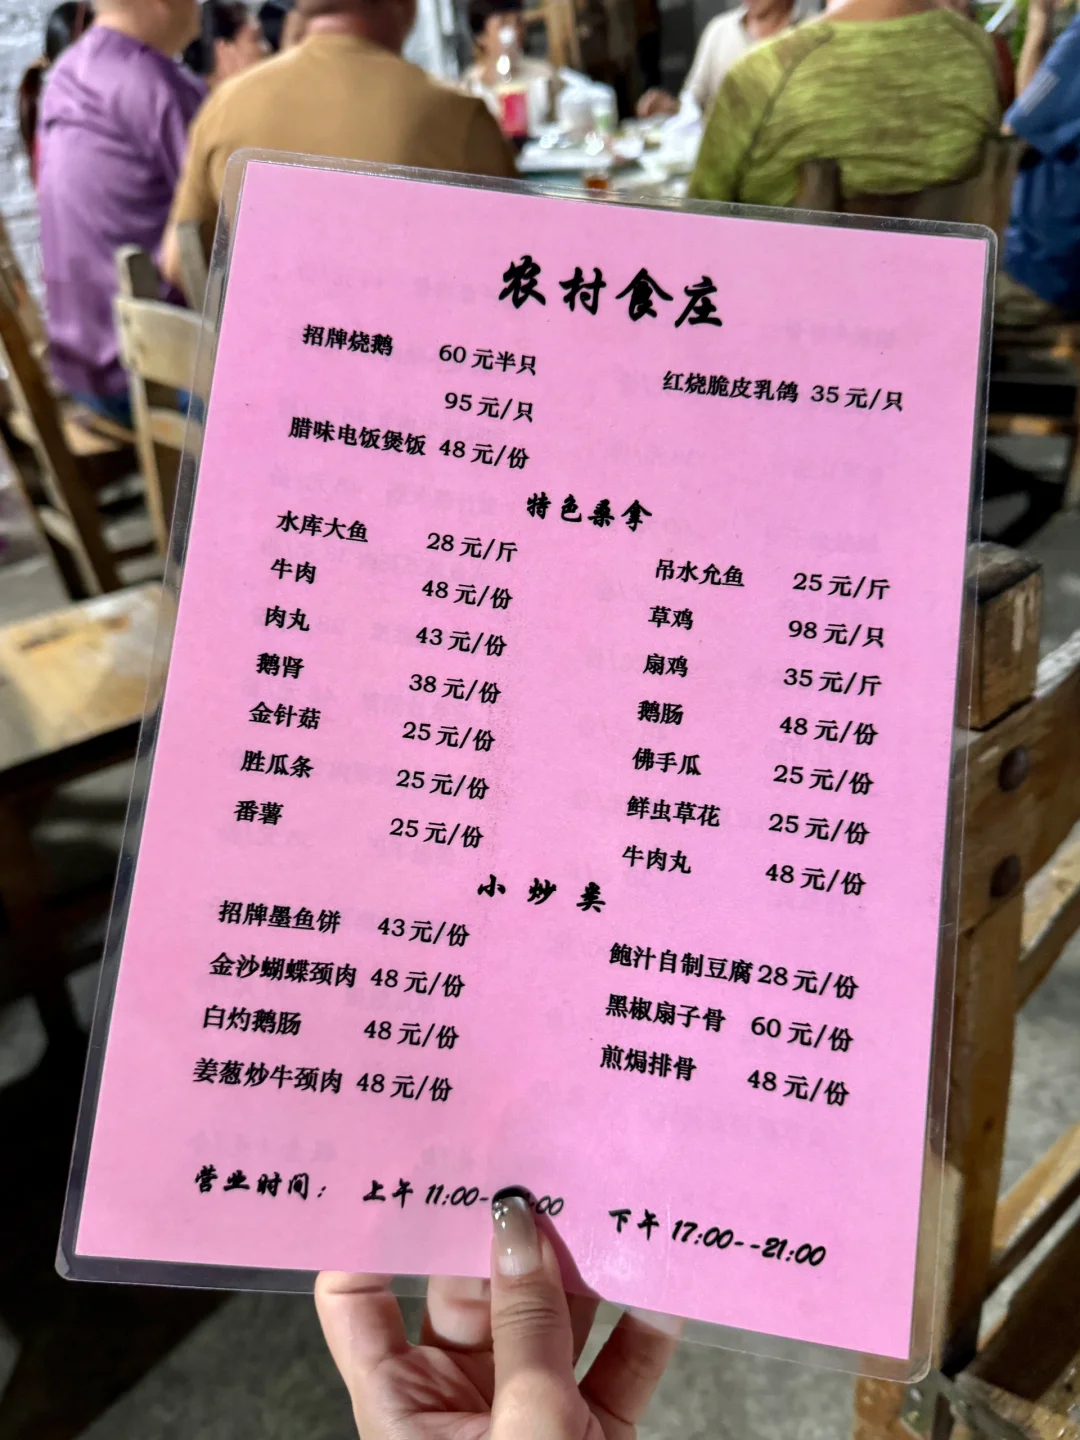 农村食庄
招牌烧鹅 60元半只
红烧脆皮乳鸽 35元/只
95元/只
腊味电饭煲饭 48元/份
特色桑拿
水库大鱼 28元/斤
吊水允鱼 25元/斤
牛肉 48元/份
草鸡 98元/只
肉丸 43元/份
扇鸡 35元/斤
鹅肾 38元/份
鹅肠 48元/份
金针菇 25元/份
佛手瓜 25元/份
胜瓜条 25元/份
鲜虫草花 25元/份
番薯 25元/份
牛肉丸 48元/份
小炒类
招牌墨鱼饼 43元/份
鲍汁自制豆腐 28元/份
金沙蝴蝶颈肉 48元/份
黑椒扇子骨 60元/份
白灼鹅肠 48元/份
煎焗排骨 48元/份
姜葱炒牛颈肉 48元/份
营业时间： 上午 11:00- :00 下午 17:00--21:00